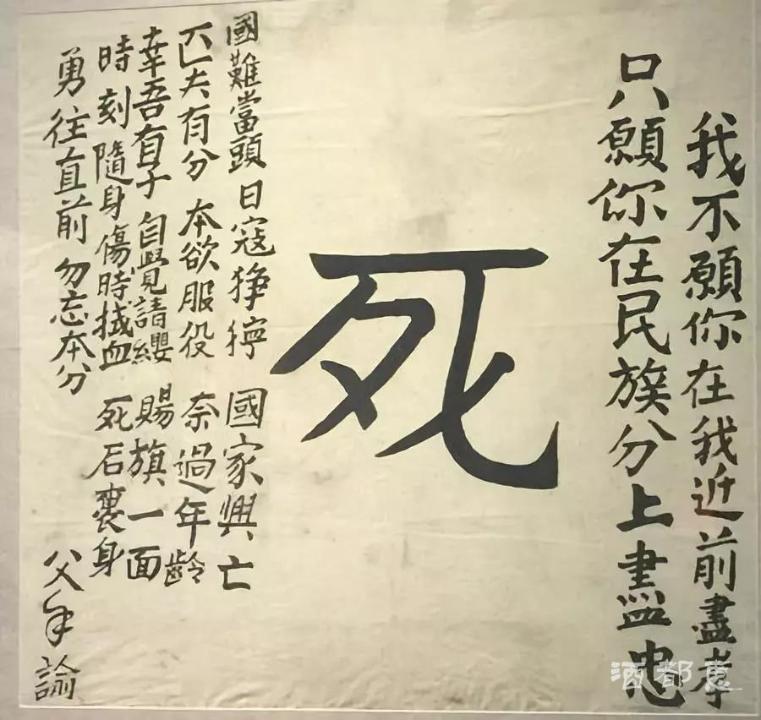 我不願你在我近前盡孝
只願你在民族分上盡忠
死
國難當頭 日寇猙獰 國家興亡
匹夫有分 本欲服役 奈過年齡
幸吾有子 自覺請纓 賜旗一面
時刻隨身 傷時拭血 死后裹身
勇往直前 勿忘本分
父手諭
酒都惠